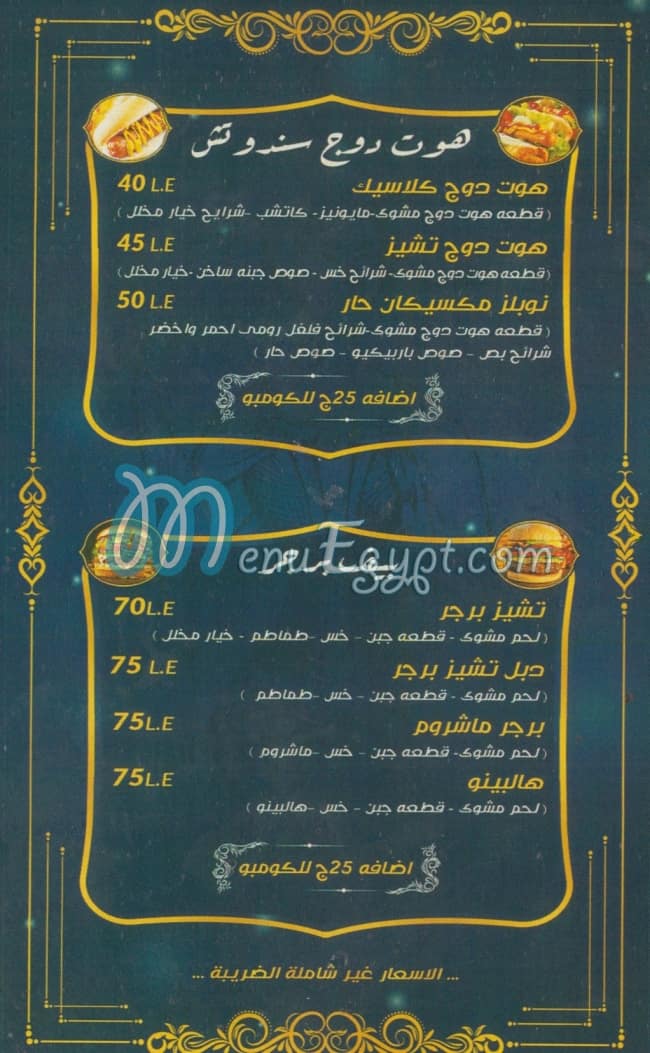 هوت دوج سندوتش
هوت دوج كلاسيك 40 L.E
( قطعه هوت دوج مشوى-مايونيز- كاتشب -شرايح خيار مخلل )
هوت دوج تشيز 45 L.E
(قطعه هوت دوج مشوى- شرائح خس - صوص جبنه ساخن -خيار مخلل)
نوبلز مكسيكان حار 50 L.E
( قطعه هوت دوج مشوى-شرائح فلفل رومى احمر واخضر
شرائح بصل - صوص باربيكيو - صوص حار )
اضافه 25ج للكومبو
MenuEgypt.com
بيف برجر
تشيز برجر 70L.E
( لحم مشوى - قطعه جبن - خس -طماطم - خيار مخلل )
دبل تشيز برجر 75 L.E
( لحم مشوى - قطعه جبن - خس -طماطم )
برجر ماشروم 75L.E
( لحم مشوى- قطعه جبن - خس -ماشروم )
هالبينو 75L.E
( لحم مشوى - قطعه جبن - خس -هالبينو )
اضافه 25ج للكومبو
... الاسعار غير شاملة الضريبة ...